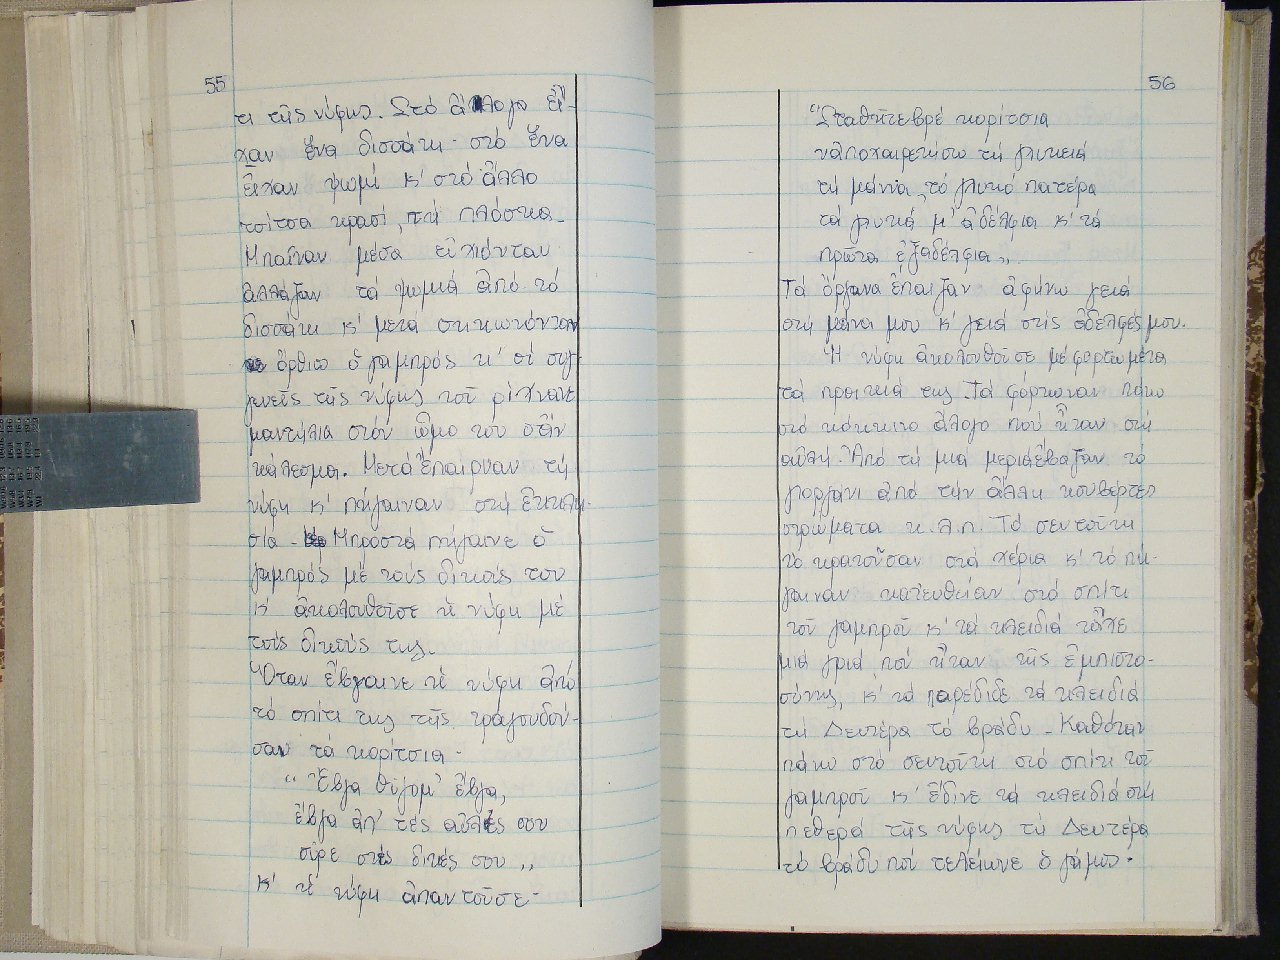 55
τι τῆς νύφης. Στό ἄλογο εἶ-
χαν ἕνα δισσάκι - στό ἕνα
εἶχαν ψωμί κ' στό ἄλλο
τσίτσα κρασί, τή πλόσκα.
Μπαῖναν μέσα εὐχιόνταν
ἀλλάζαν τά ψωμιά ἀπό τό
δισσάκι κ' μετά σηκωνόνταν
ὄρθιο ὁ γαμπρός κ' οἱ συγ-
γενεῖς τῆς νύφης τοῦ ρίχναν
μαντήλια στόν ὦμο του ὅταν
κάλεσμα. Μετά ἔπαιρναν τή
νύφη κ' πήγαιναν στή ἐκκλη-
σία - Μπροστά πήγαινε ὁ
γαμπρός μέ τούς δικούς του
κ' ἀκολουθοῦσε ἡ νύφη μέ
τούς δικούς της.
Ὅταν ἔβγαινε ἡ νύφη ἀπό
τό σπίτι της τῆς τραγουδού-
σαν τά κορίτσια -
"Ἔβγα θύγομ' ἔβγα,
ἔβγα ἀπ' τές αὐλές σου
σῦρε στές δικές σου „
κ' ἡ νύφη ἀπαντοῦσε -
56
"Σταθῆτε βρέ κορίτσια
ν' ἀποχαιρετήσω τή γλυκειά
τή μάννα, τό γλυκό πατέρα
τά γλυκά μ' ἀδέλφια κ' τά
πρῶτα ἐξαδέλφια „
Τά ὄργανα ἔπαιζαν ἀφήνω γειά
στή μάνα μου κ' γειά στίς ἀδελφές μου.
Ἡ νύφη ἀκολουθοῦσε μέ φορτωμένα
τά προικιά της. Τά φόρτωναν πάνω
στό κόκκινο ἄλογο πού ἦταν στή
αὐλή. Ἀπό τή μιά μεριά ἔβαζαν τό
γιοργάνι ἀπό τήν ἄλλη κουβέρτες
στρώματα κ.λ.π. Τό σεντοῦκι
τό κρατοῦσαν στά χέρια κ' τό πή-
γαιναν κατευθείαν στό σπίτι
τοῦ γαμπροῦ κ' τά κλειδιά τἆχε
μιά γριά πού ἦταν τῆς ἐμπιστο-
σύνης, κ' τά παρέδιδε τά κλειδιά
τή Δευτέρα τό βράδυ - Καθόταν
πάνω στό σεντοῦκι στό σπίτι τοῦ
γαμπροῦ κ' ἔδινε τά κλειδιά στή
πεθερά τῆς νύφης τή Δευτέρα
τό βράδυ πού τελείωνε ὁ γάμος.